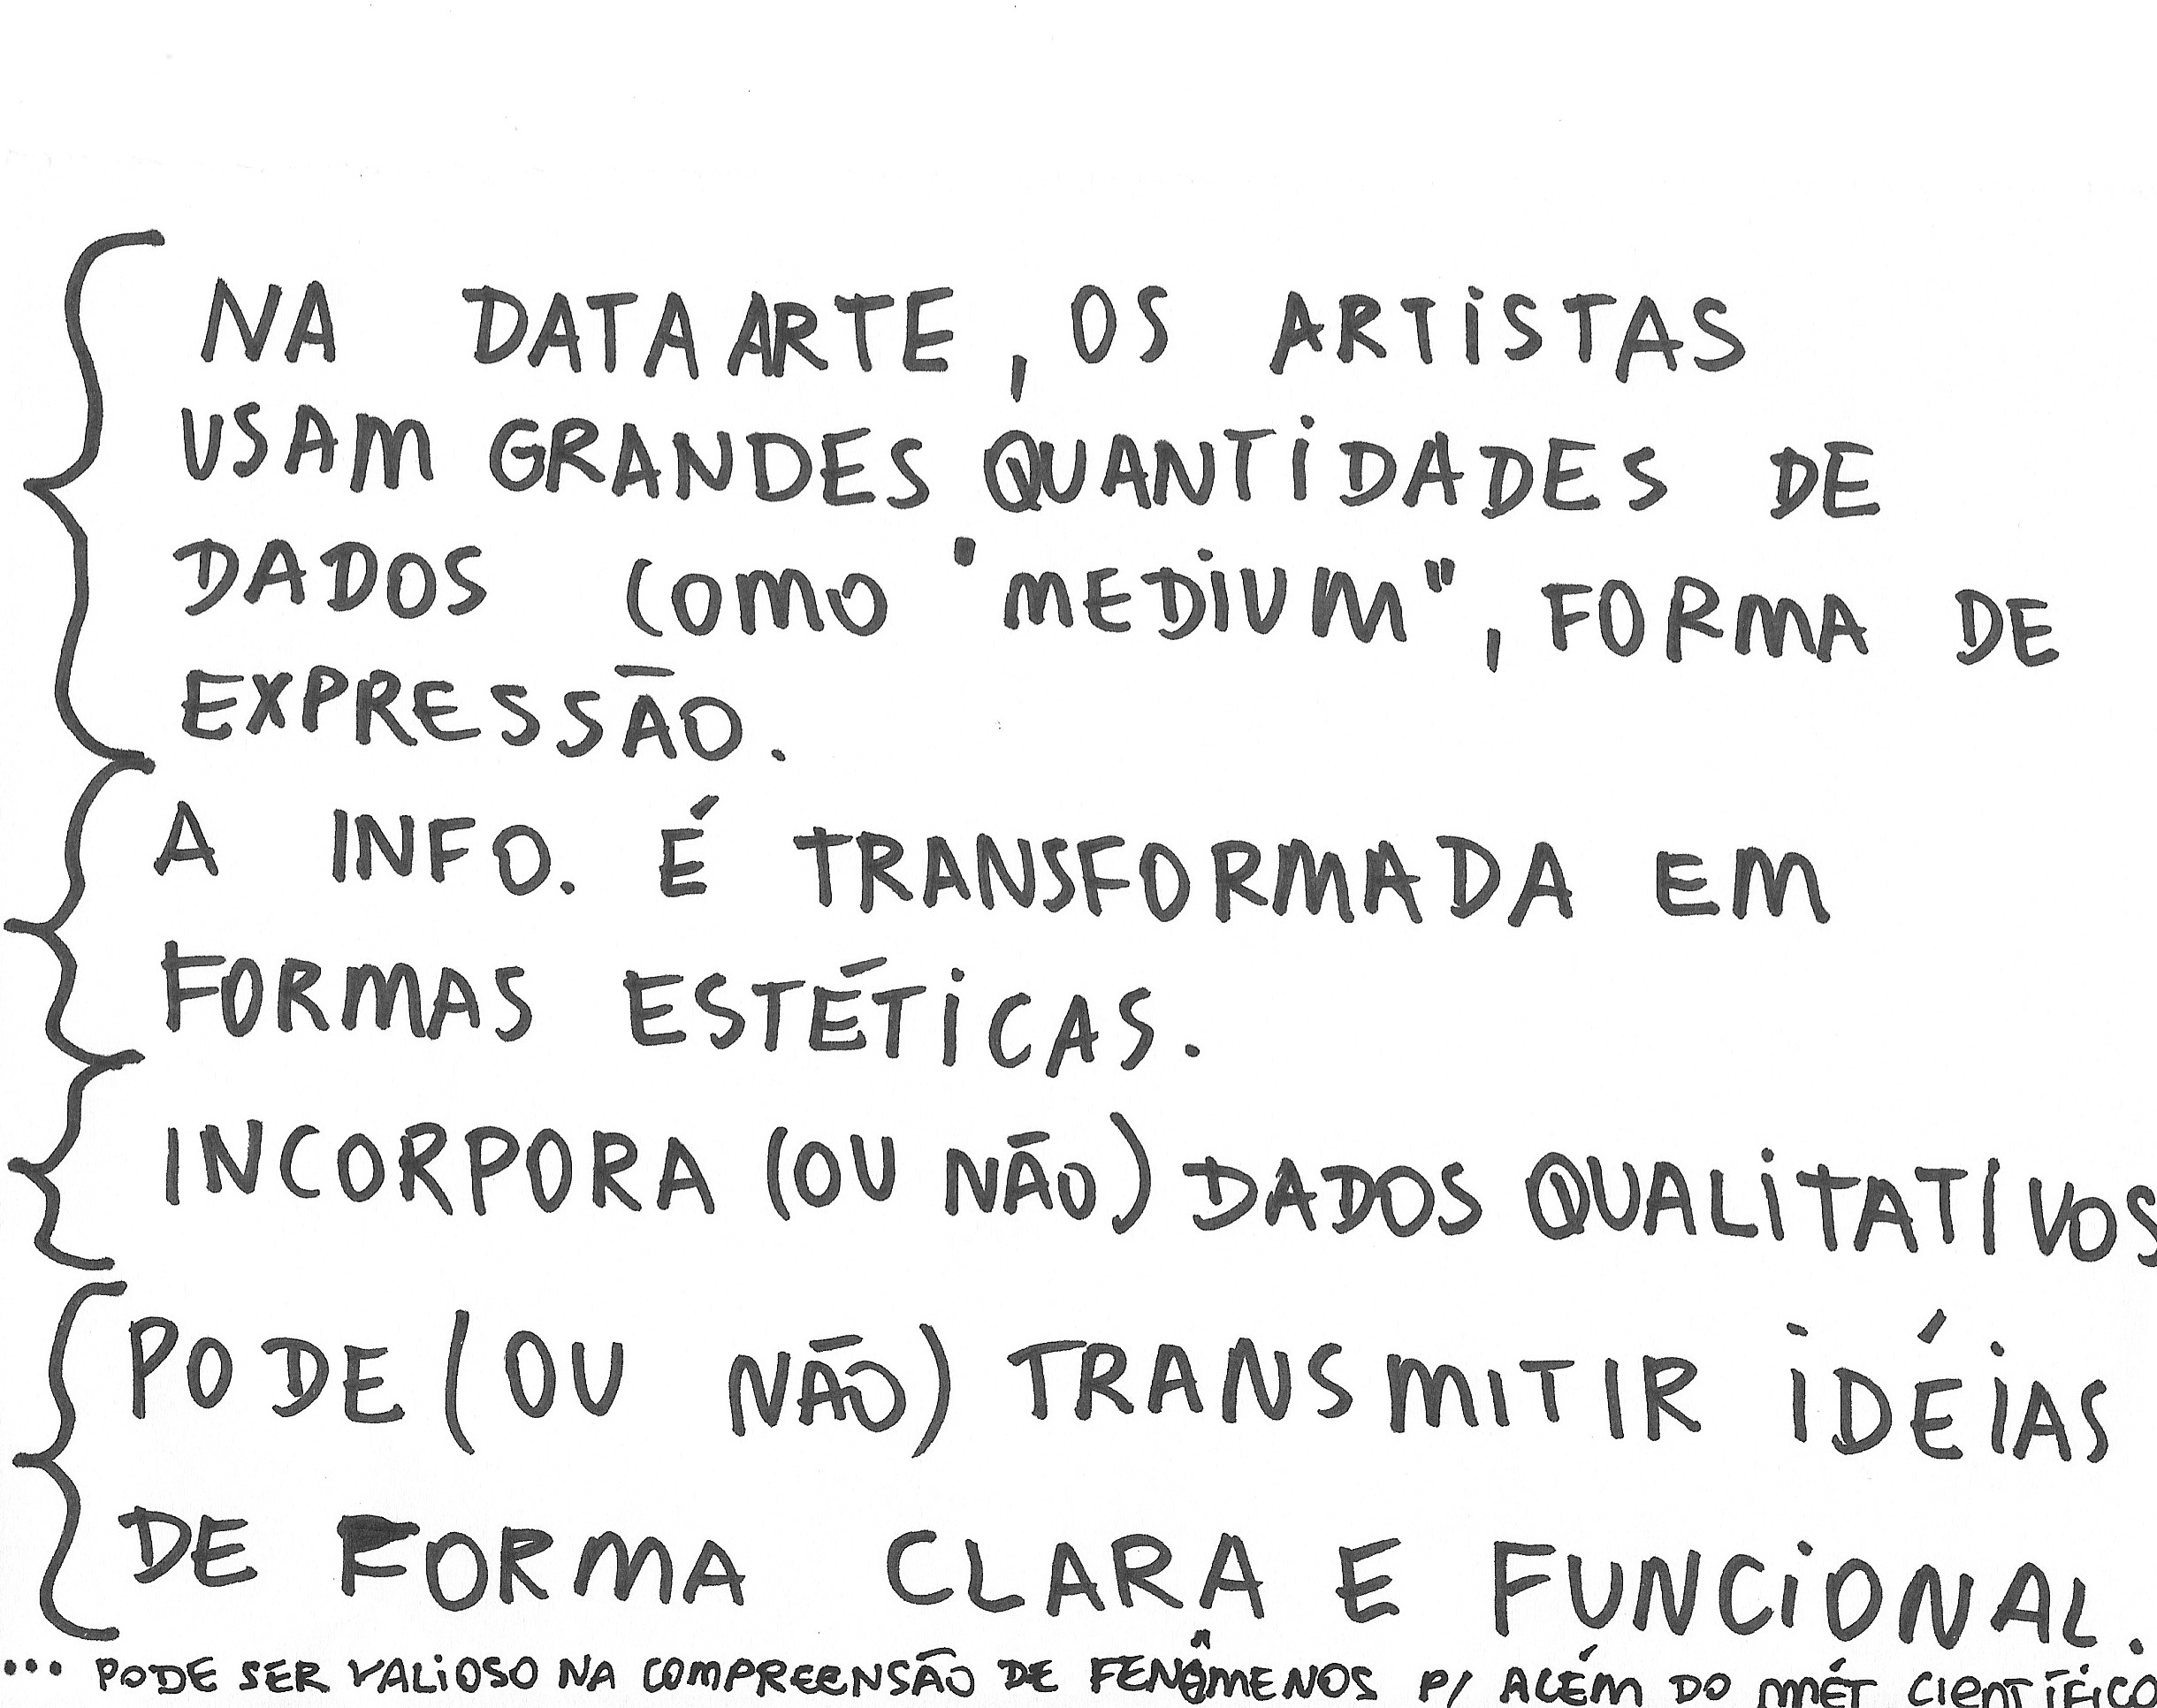 NA DATA ARTE, OS ARTISTAS
USAM GRANDES QUANTIDADES DE
DADOS COMO "MEDIUM", FORMA DE
EXPRESSÃO.
A INFO. É TRANSFORMADA EM
FORMAS ESTÉTICAS.
INCORPORA (OU NÃO) DADOS QUALITATIVOS
PODE (OU NÃO) TRANSMITIR IDÉIAS
DE FORMA CLARA E FUNCIONAL.
... PODE SER VALIOSO NA COMPREENSÃO DE FENÔMENOS P/ ALÉM DO MÉT CIENTÍFICO